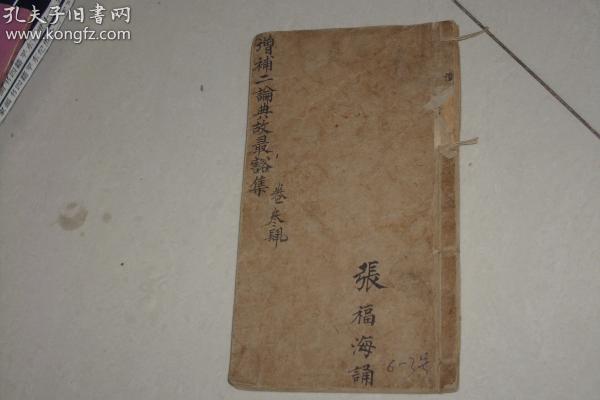 孔夫子旧书网
www.kongfz.com
增補二論典故最豁集
卷叁肆
張福海誦
6-3号